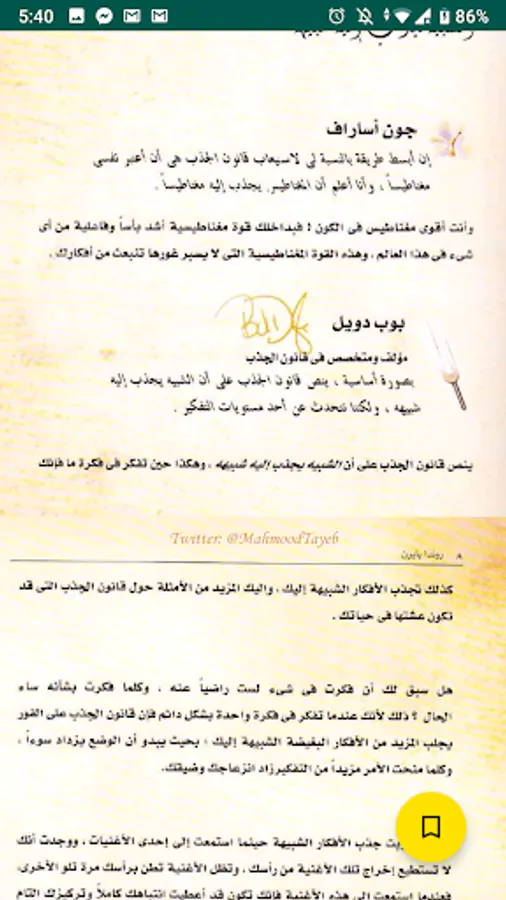 5:40
86%
جون أساراف
إن أبسط طريقة بالنسبة لى لاسيعاب قانون الجذب هى أن أعتبر نفسى
مغناطيساً ، وأنا أعلم أن المغناطيس يجذب إليه مغناطيساً .
وأنت أقوى مغناطيس فى الكون ! فبداخلك قوة مغناطيسية أشد بأساً وفاعلية من أى
شىء فى هذا العالم ، وهذه القوة المغناطيسية التى لا يسبر غورها تنبعث من أفكارك .
بوب دويل
مؤلف ومتخصص فى قانون الجذب
بصورة أساسية ، ينص قانون الجذب على أن الشبيه يجذب إليه
شبيهه ، ولكننا نتحدث عن أحد مستويات التفكير .
ينص قانون الجذب على أن الشبيه يجذب إليه شبيهه ، وهكذا حين تفكر فى فكرة ما فإنك
Twitter: @MahmoodTayeb
٨ روندا بايرن
كذلك تجذب الأفكار الشبيهة إليك ، واليك المزيد من الأمثلة حول قانون الجذب التى قد
تكون عشتها فى حياتك .
هل سبق لك أن فكرت فى شىء لست راضياً عنه ، وكلما فكرت بشأنه ساء
الحال ؟ ذلك لأنك عندما تفكر فى فكرة واحدة بشكل دائم فإن قانون الجذب على الفور
يجلب المزيد من الأفكار البغيضة الشبيهة إليك ، بحيث يبدو أن الوضع يزداد سوءاً ،
وكلما منحت الأمر مزيداً من التفكير زاد انزعاجك وضيقك.
جذب الأفكار الشبيهة حينما استمعت إلى إحدى الأغنيات ، ووجدت أنك
لا تستطيع إخراج تلك الأغنية من رأسك ، وتظل الأغنية تطن برأسك مرة تلو الأخرى،
فعندما استمعت إلى هذه الأغنية فإنك تكون قد أعطيت انتباهك كاملاً وتركيزك التام